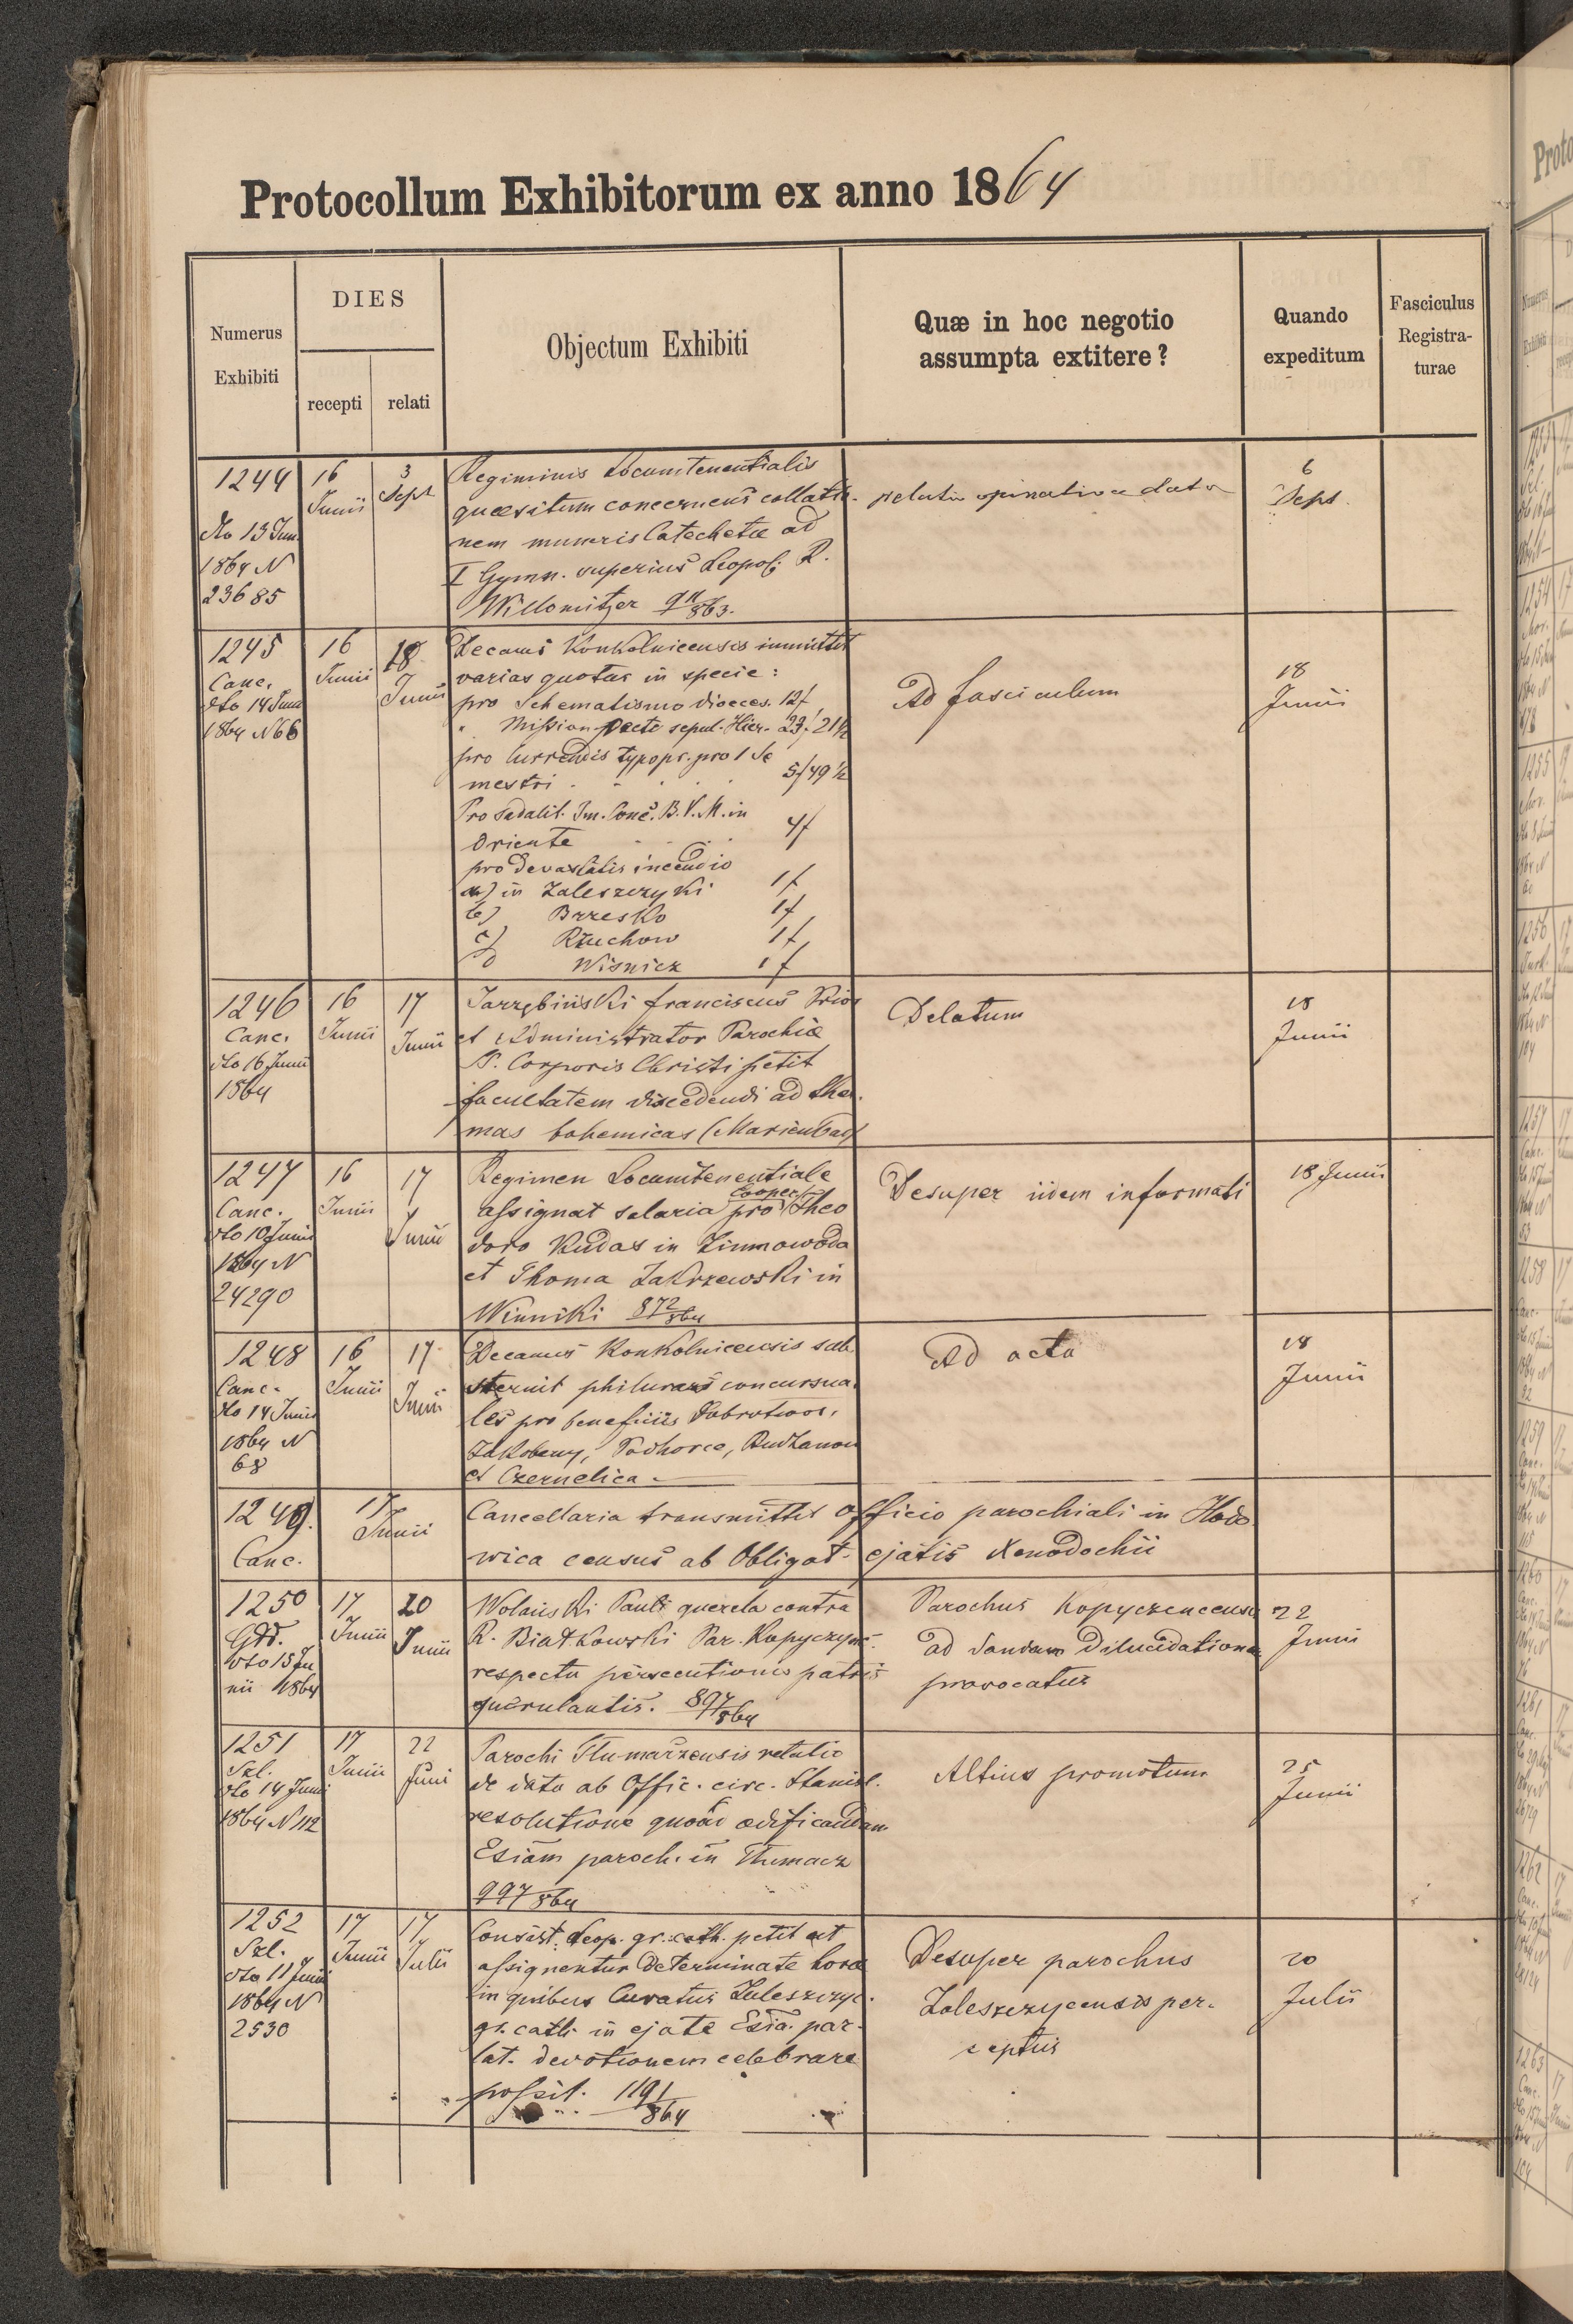 Protocollum Exhibitorum ex anno 1864
Numerus Exhibiti
DIES
recepti
relati
Objectum Exhibiti
Quæ in hoc negotio assumpta extitere?
Quando expeditum
Fasciculus Registra- turae
1244
dto 13 Jun.
1864 N
23685
16
Junii
3
Sept
Regiminis Locumtenentialis
quaesitum concernens collatio-
nem muneris Catechetæ ad
I Gymn. superius Leopol. R.
Willomitzer
relatio opinativa data
6
Sept.
1245
Canc.
dto 14 Junii
1864 N 66
16
Junii
18
Junii
Decanus Konkolnicensis immittit
varias quotas in specie:
pro Schematismo dioeces. 12f
" Mission sepul. Hier. 23f 21½
pro Currendis typogr. pro I Se
mestri . . . . 5f 49½
Pro Sodalit. Im. Conc. B. V. M. in
Oriente . . . 4f
pro devastatis incendio
a) in Zaleszczyki 1f
b) Brzesko 1f
c) Rzuchow 1f
d Wisnicz 1f
Ad fasciculum
18
Junii
1246
Canc.
dto 16 Junii
1864
16
Junii
17
Junii
Jarzębiński Franciscus Prior
et Administrator Parochiæ
S. Corporis Christi petit
facultatem discedendi ad ther-
mas bohemicas (Marienbad)
Delatum
18
Junii
1247
Canc.
dto 10 Junii
1864 N
24290
16
Junii
17
Junii
Regimen Locumtenentiale
Cooper.
assignat salaria pro Theo
doro Kudas in Zimnowoda
et Thoma Zakrzewski in
Winniki 872/864
Desuper iidem informati
18 Junii
1248
Canc.
dto 14 Junii
1864 N
68
16
Junii
17
Junii
Decanus Konkolnicensis sub
sternit philuras concursua
les pro beneficiis Dobrotwor,
Jakobeny, Podhorce, Budzanow
et Czernelica.
Ad acta
18
Junii
1249.
Canc.
17
Junii
Cancellaria transmittit officio parochiali in Hodo
wica census ab Obligat. ejatis Xenodochii
1250
Gdd.
dto 15 Ju
nii 1864
17
Junii
20
Junii
Wolański Pauli querela contra
R. Białkowski Par. Kopyczync.
respectu persecutionis patris
querulantis. 897/864
Parochus Kopyczencensis
ad dandam dilucidationem
provocatus
22
Junii
1251
Szl.
dto 14 Junii
1864 N 112
17
Junii
22
Juni
Parochi Tlumaczensis relatio
de data ab Offic. circ. Stanisl.
resolutione quoad ædificandam
Esiam paroch. in Tlumacz
997/864
Altius promotum
25
Junii
1252
Szl.
dto 11 Junii
1864 N
2530
17
Junii
17
Julii
Consist. Leop. gr. cath. petit ut
assignentur determinate horæ
in quibus Curatus Zaleszczyc.
gr. cath. in ejate Esia. par.
lat. devotionem celebrare
possit. 1191/864
Desuper parochus
Zaleszczycensis per-
ceptus
20
Julii